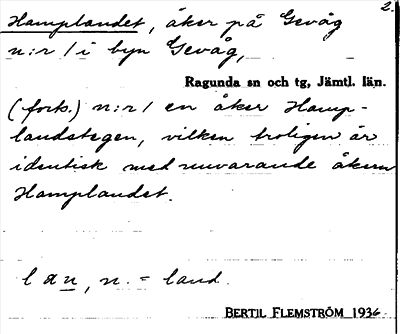 2.
Hamplandet, åker på Gevåg
n:r 1 i byn Gevåg,
Ragunda sn och tg, Jämtl. län.
(forts.) n:r 1 en åker Hamp-
landstegen, vilken troligen är
identisk med nuvarande åkern
Hamplandet.
l a n, n. = land.
BERTIL FLEMSTRÖM 1936